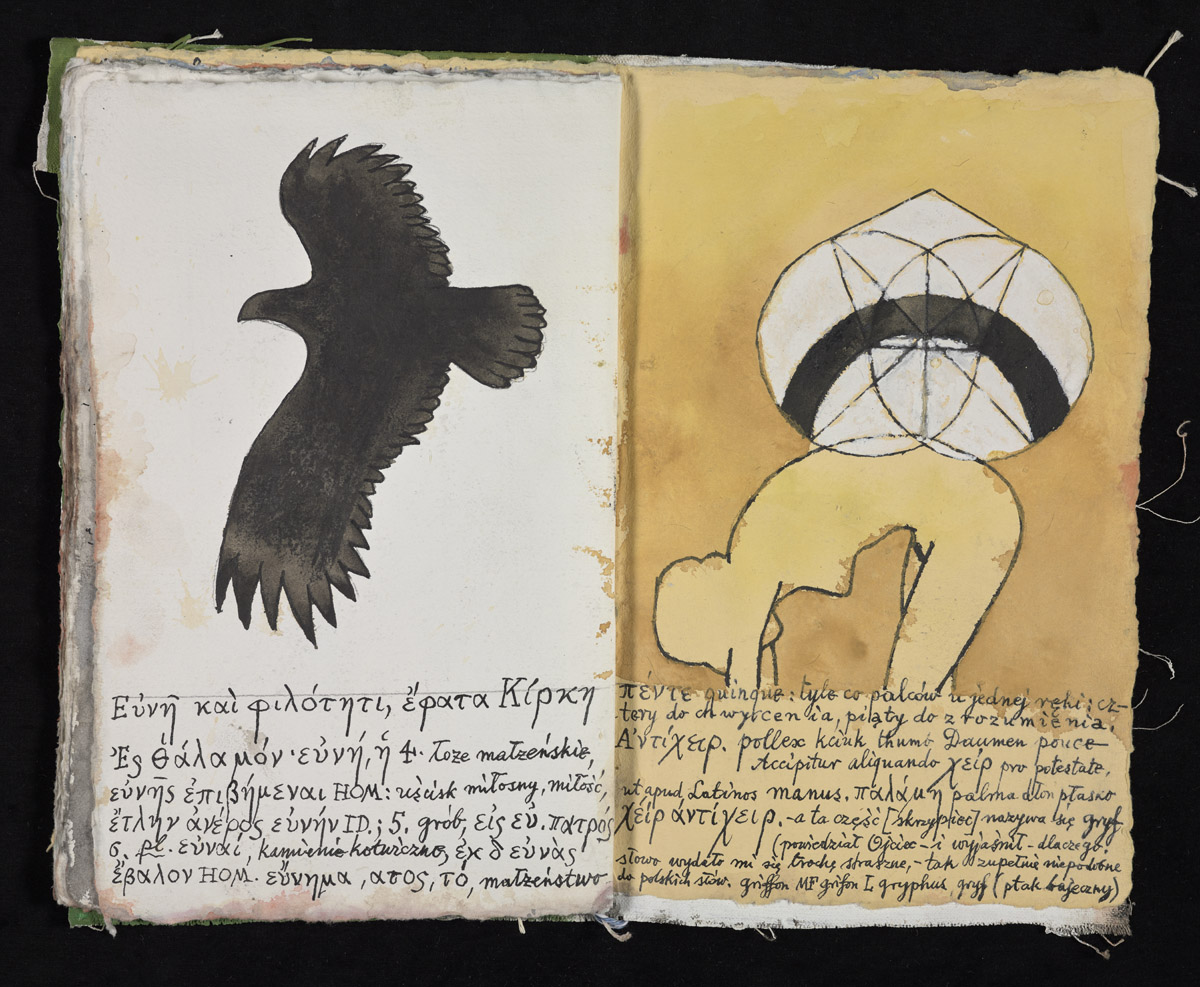 Εὐνῆ καὶ φιλότητι, ἔφατα Κίρκη
Ἐς θάλαμόν·εὐνή, ἡ 4· łoże małżeńskie,
εὐνῆς ἐπιβήμεναι HOM: uścisk miłosny, miłość,
ἔτλην ἀνέρος εὐνήν ID.; 5. grób, εἰς εὐ. πατρός
6. pl. εὐναί, kamienie kotwiczne, ἐκ δ εὐνὰς
ἔβαλον HOM. εὔνημα, ατος, τό, małżeństwo
πέντε quinque: tyle co palców u jednej ręki: cz-
tery do chwytcenia, piąty do zrozumienia.
Ἀντίχειρ. pollex kciuk thumb Daumen pouce
Accipitur aliquando χείρ pro potestate,
ut apud Latinos manus. παλάμη palma dłoń płasko
χείρ ἀντίχειρ. -a ta część [skrzypiec] nazywa się gryf
(powiedział Ojciec - i wyjaśnił - dlaczego
słowo wydało mi się trochę straszne, - tak zupełnie niepodobne
do polskich słów. griffon MF grifon L gryphus, gryf (ptak bajeczny)